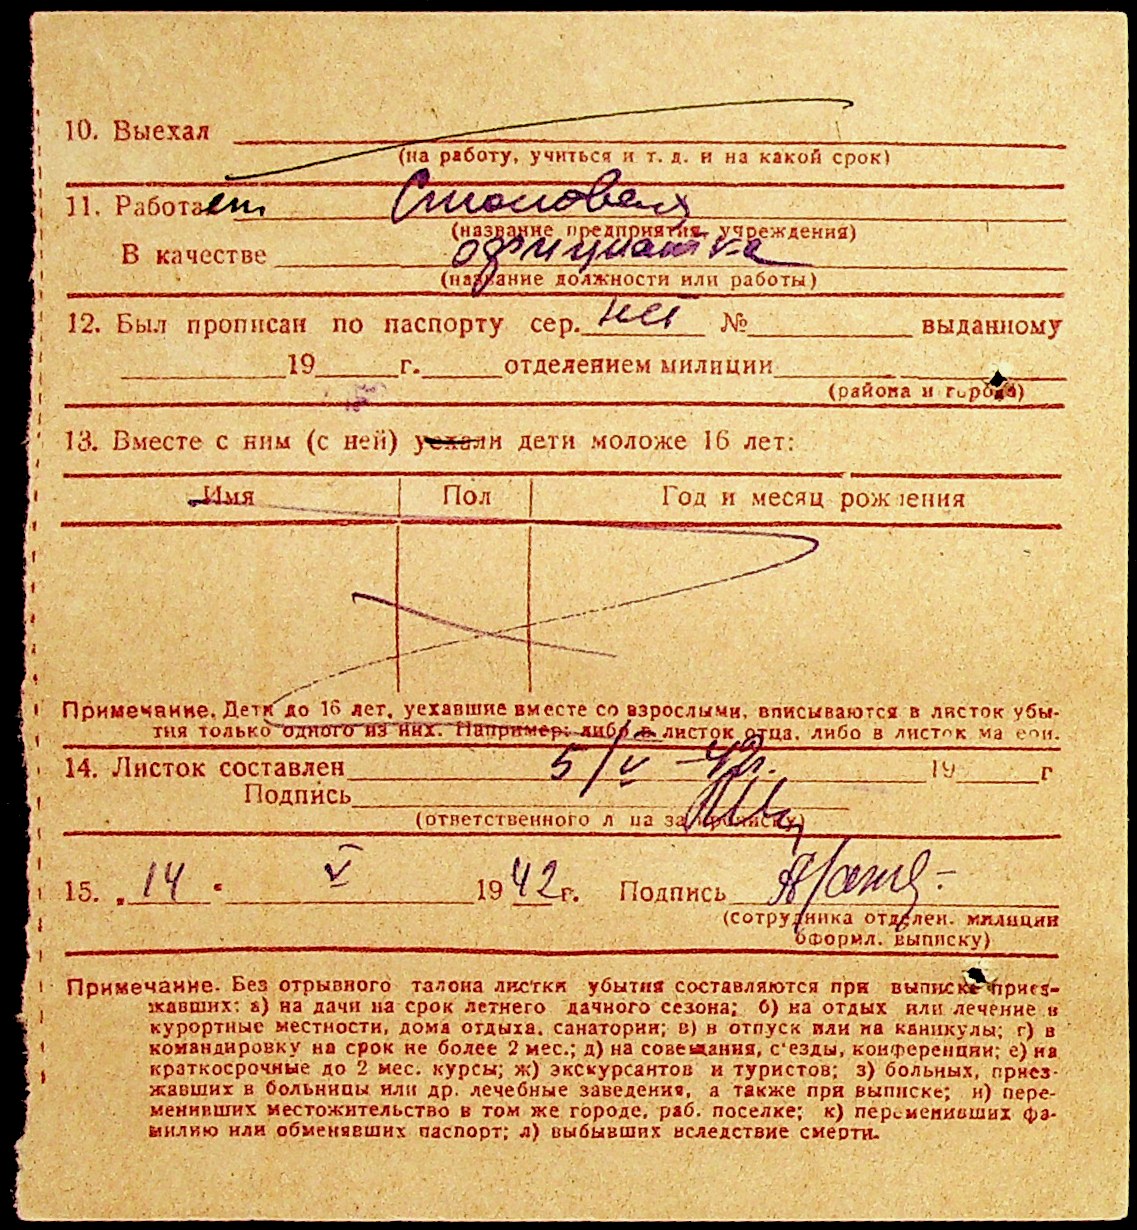 10. Выехал
(на работу, учиться и т. д. и на какой срок)
11. Работает Столовая
(название предприятия, учреждения)
В качестве официантка
(название должности или работы)
12. Был прописан по паспорту сер. нет № выданному
19 г. отделением милиции
(района и города)
13. Вместе с ним (с ней) уехали дети моложе 16 лет:
Имя Пол Год и месяц рождения
Примечание. Дети до 16 лет, уехавшие вместе со взрослыми, вписываются в листок убы-
тия только одного из них. Например: либо в листок отца, либо в листок матери.
14. Листок составлен 5/V-42г. 19 г
Подпись
(ответственного лица за прописку)
15. „14" V 1942г. Подпись
(сотрудника отделен. милиции
оформл. выписку)
Примечание. Без отрывного талона листки убытия составляются при выписке приез-
жавших: а) на дачи на срок летнего дачного сезона; б) на отдых или лечение в
курортные местности, дома отдыха, санатории; в) в отпуск или на каникулы; г) в
командировку на срок не более 2 мес.; д) на совещания, с'езды, конференции; е) на
краткосрочные до 2 мес. курсы; ж) экскурсантов и туристов; з) больных, приез-
жавших в больницы или др. лечебные заведения, а также при выписке; и) пере-
менивших местожительство в том же городе, раб. поселке; к) переменивших фа-
милию или обменявших паспорт; л) выбывших вследствие смерти.